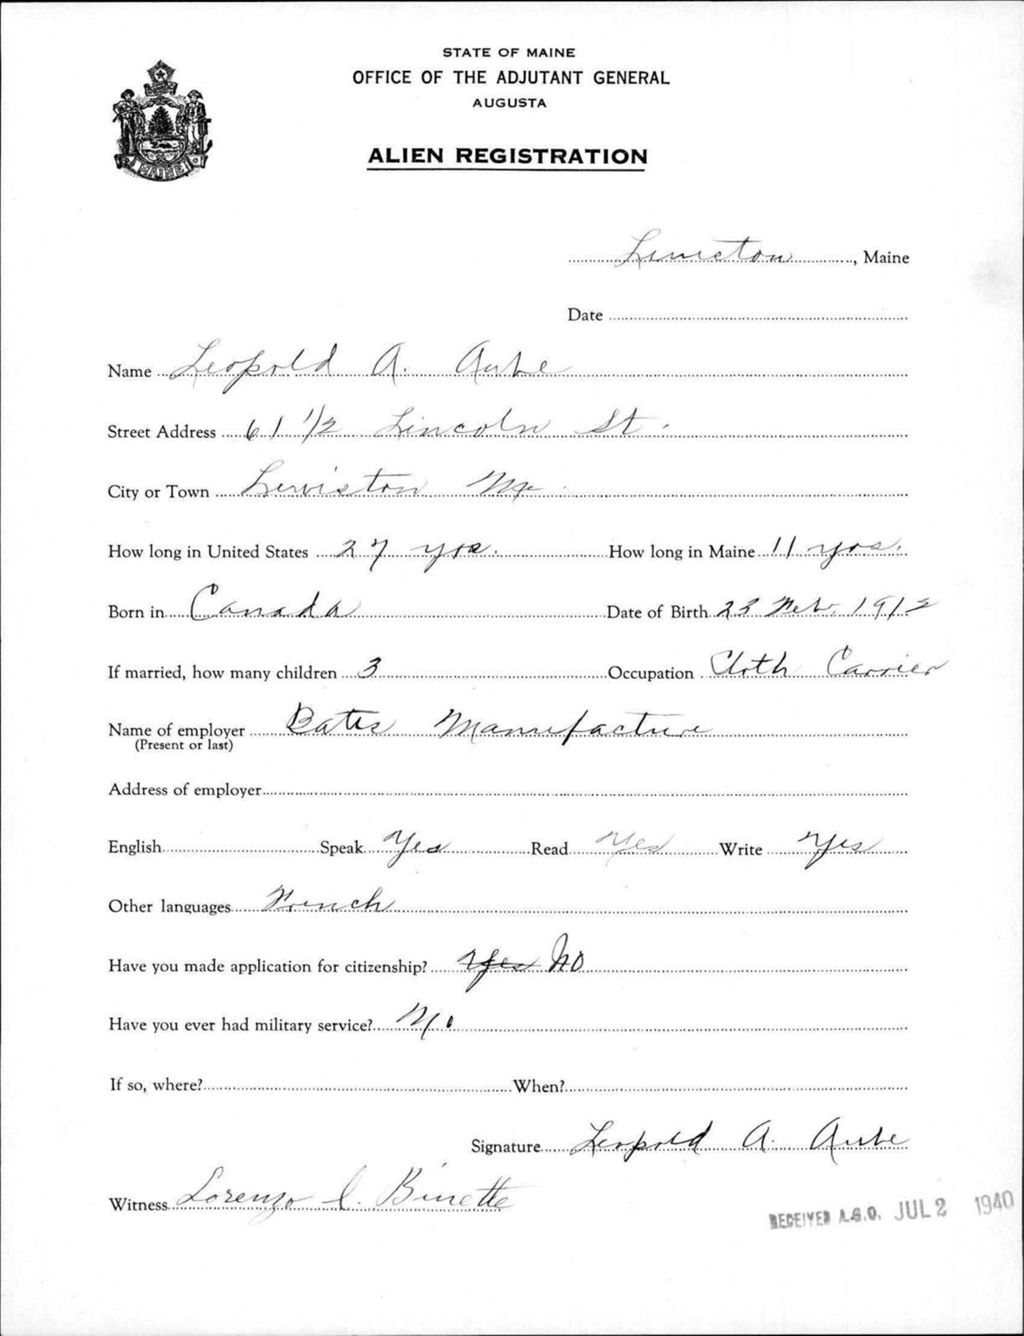 STATE OF MAINE
OFFICE OF THE ADJUTANT GENERAL
AUGUSTA
ALIEN REGISTRATION
MAINE
Lewiston, Maine
Date
Name Leopold A. Aube
Street Address 61 1/2 Lincoln St.
City or Town Lewiston Me.
How long in United States 27 yrs. How long in Maine 11 yrs.
Born in Canada Date of Birth 23 Feb. 1912
If married, how many children 3 Occupation Cloth Carrier
Name of employer Bates Manufacture
(Present or last)
Address of employer
English Speak Yes Read Yes Write Yes
Other languages French
Have you made application for citizenship? Yes No
Have you ever had military service? No
If so, where? When?
Signature Leopold A. Aube
Witness Lorenzo J. Binette
RECEIVED A.G.O. JUL 2 1940